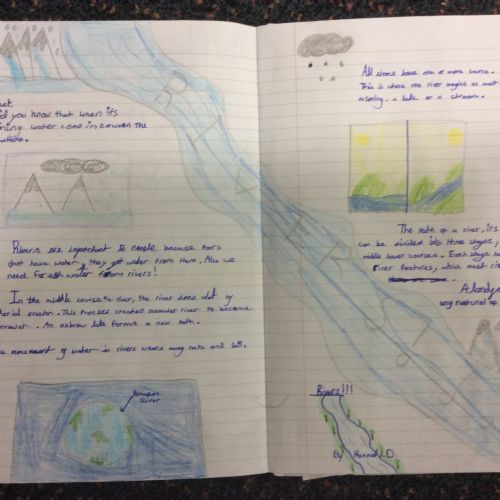 d you know that when its
ning water come in between the
untains.
Rivers are important to people because poors
dont have water, they get water from there. Also we
need water from rivers!
In the middle course the river, the river does alot of
erial erosion. This process created meander river to become
rrower. An oxbow lake forms a new path.
e movement of water in rivers wears away rocks and soil.
Amazon
River
RIVERS
All rivers have one or more source.
This is where the river begins as most
a spring, a lake or a stream.
The Path of a river, its
can be divided into three stages,
middle lower courses. Each stage has
river features, which most
A landsc
any natural of
Rivers!!!
By D